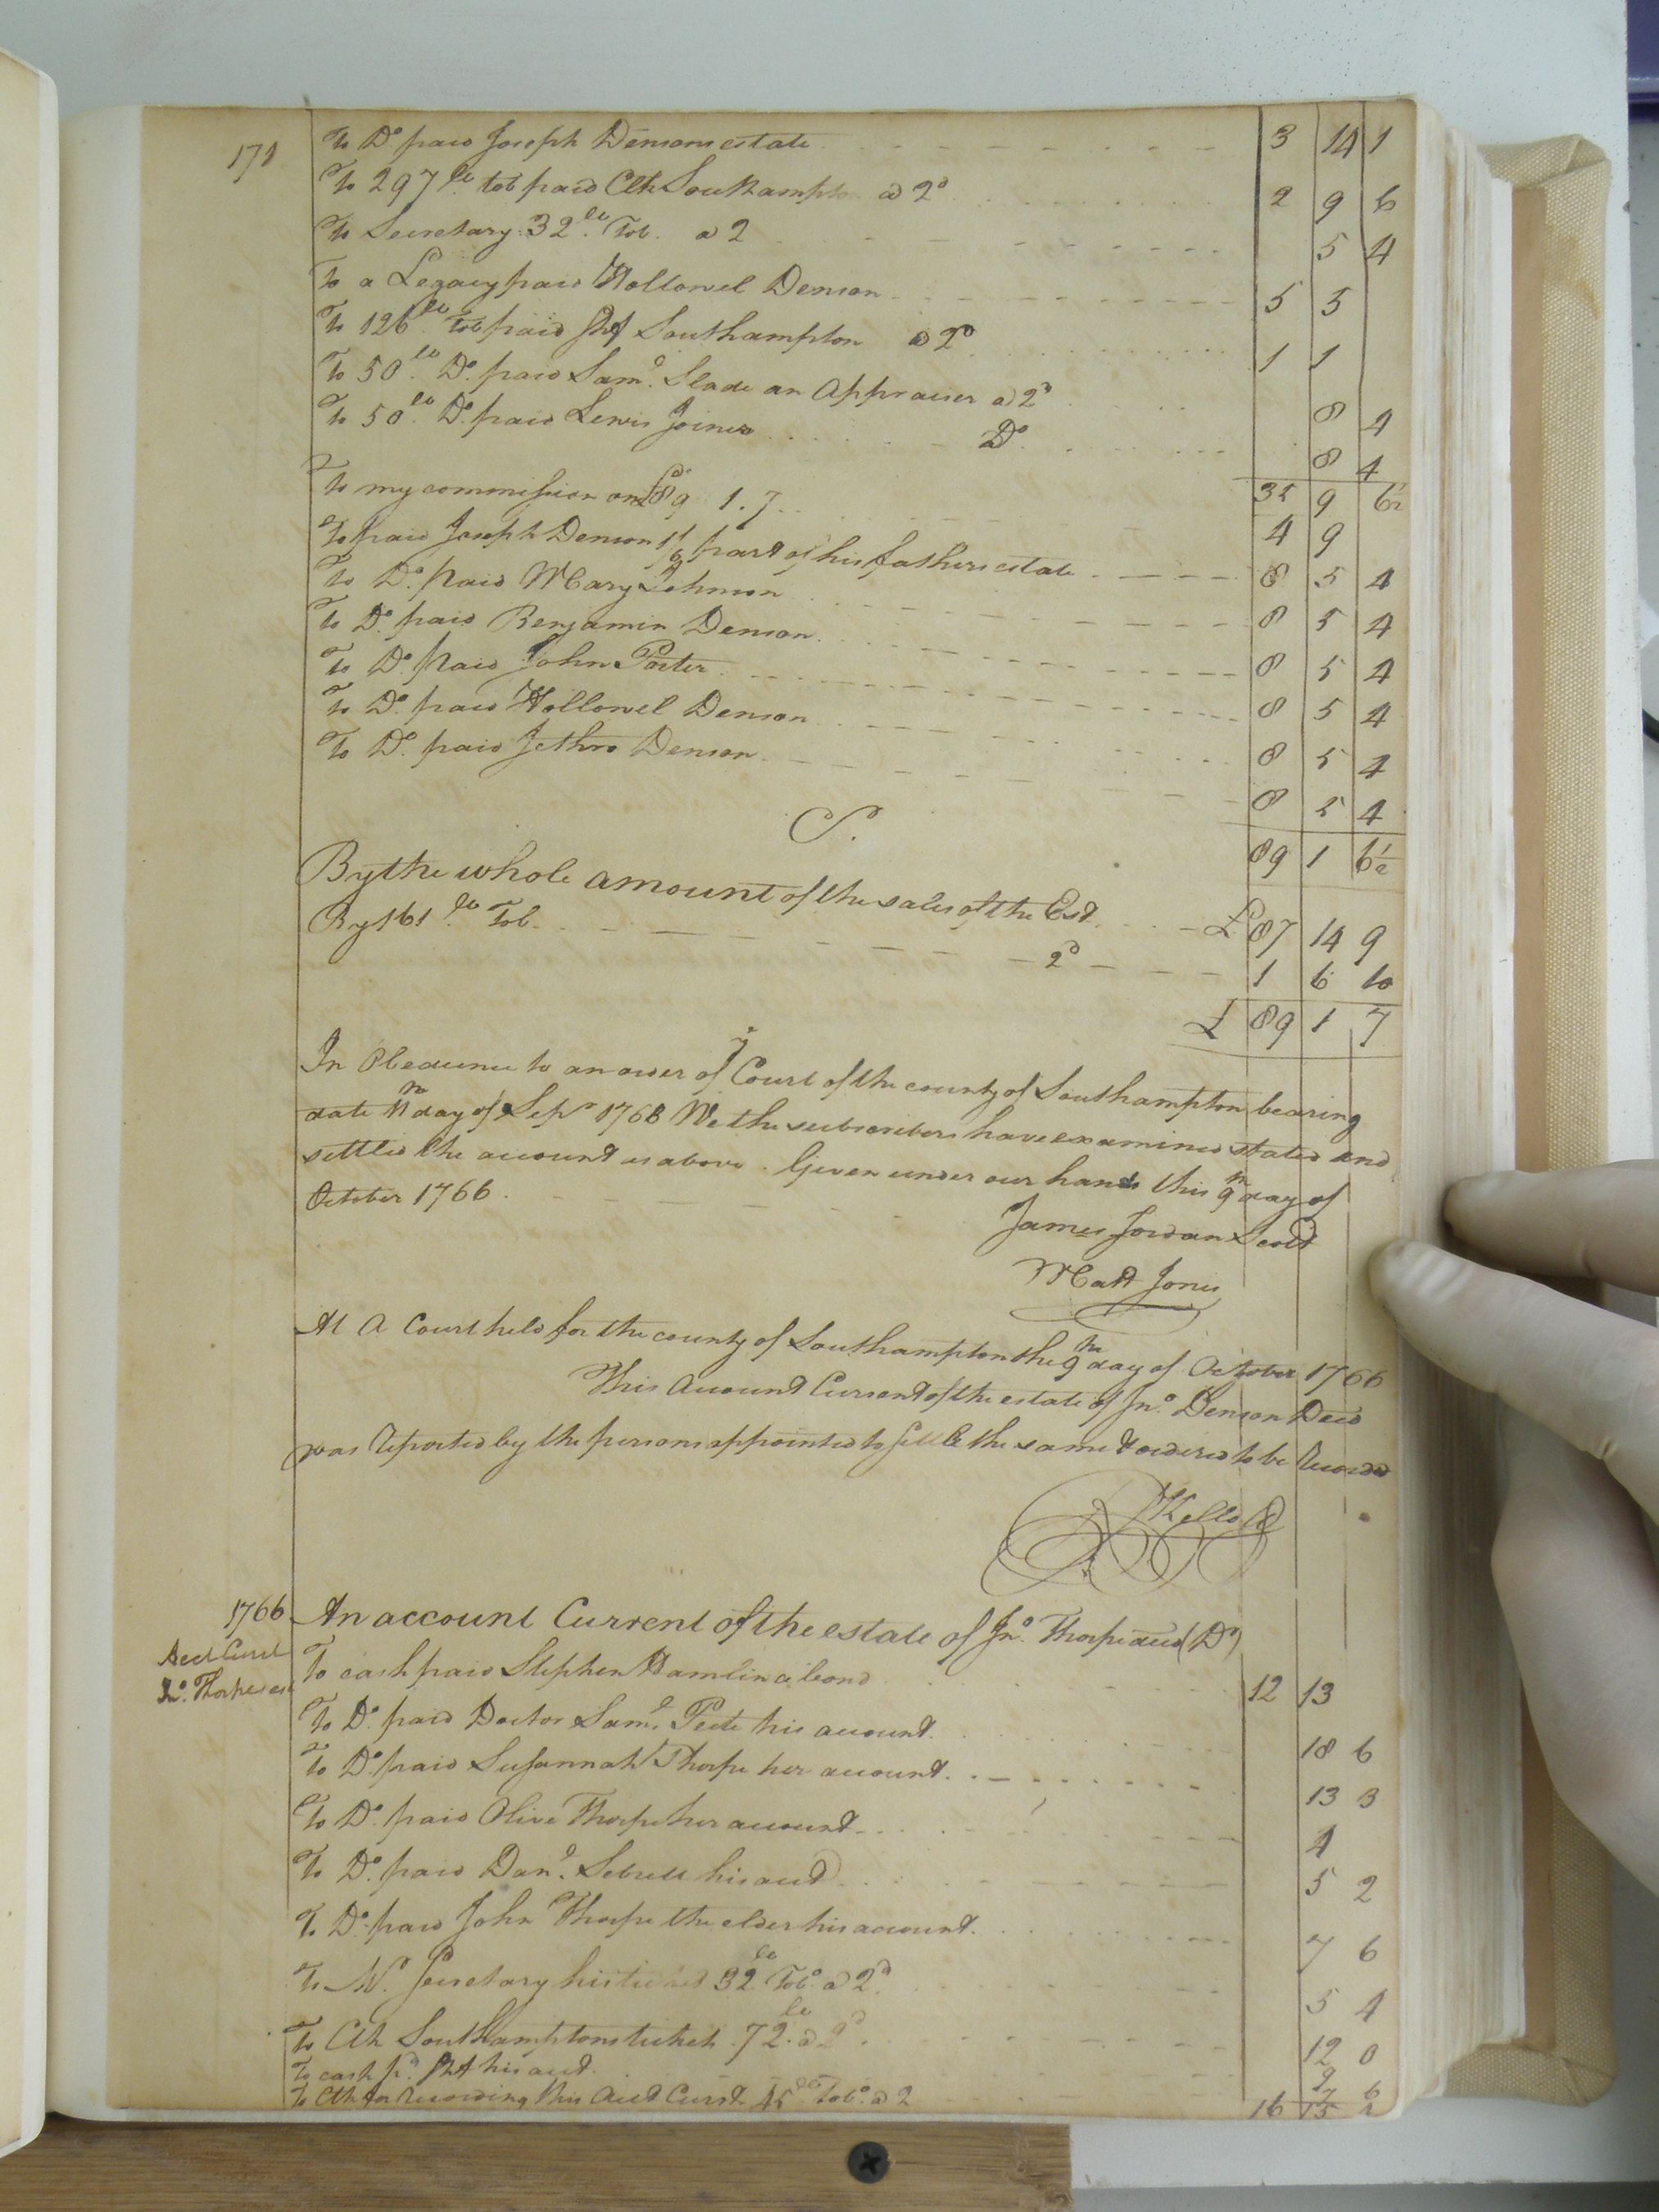 171
To Do paid Joseph Densons estate 3 14 1
To 297 lb tob paid Clk Southampton a 2d 2 9 6
To Secretary 32 lb Tob. a 2 5 4
To a Legacy paid Hollowel Denson 5 5
To 126 lb Tob paid Shf Southampton a 2d 1 1
To 50 lb Do. paid Saml. Slade an Appraiser a 2d 8 4
To 50 lb Do. paid Lewis Joiner Do 8 4
35 9 6½
To my commission on £89 1. 7 4 9
To paid Joseph Denson 1/6 part of his fathers estate 8 5 4
To Do. paid Mary Johnson 8 5 4
To Do. paid Benjamin Denson 8 5 4
To Do. paid John Porter 8 5 4
To Do. paid Hollowel Denson 8 5 4
To Do. paid Jethro Denson 8 5 4
89 1 6½
By the whole amount of the sales of the Est. £ 87 14 9
By 161 lb Tob. 2d 1 6 10
£ 89 1 7
In Obedience to an order of ye Court of the county of Southampton bearing
date 11th day of Sepr 1766 We the subscribers have examined stated and
settled the account as above. Given under our hands this 9th day of
October 1766.
James Jordan Scott
Matt Jones
At A Court held for the county of Southampton the 9th day of October 1766
This Account Current of the estate of Jno. Denson Decd
was Reported by the persons appointed to settle the same & ordered to be Recorded
R Kello
1766 An account Current of the estate of Jno. Thorpe decd (Dr)
Acct Curt
Jno. Thorpes est
To cash paid Stephen Hamlin a bond 12 13
To Do. paid Doctor Saml. Peete his account 18 6
To Do. paid Susannah Thorpe her account 13 3
To Do. paid Olive Thorpe her account 4
To Do. paid Danl. Sebrell his acct 5 2
To Do. paid John Thorpe the elder his account 7 6
To Mr. Secretary his ticket 32 lb Tobo. a 2d 5 4
To Clk Southamptons ticket 72 lb a 2d 12 0
To cash pd. Shf his acct.
To Clk for Recording this Acct Currt. 45 lb Tobo. a 2 7 6
16 15